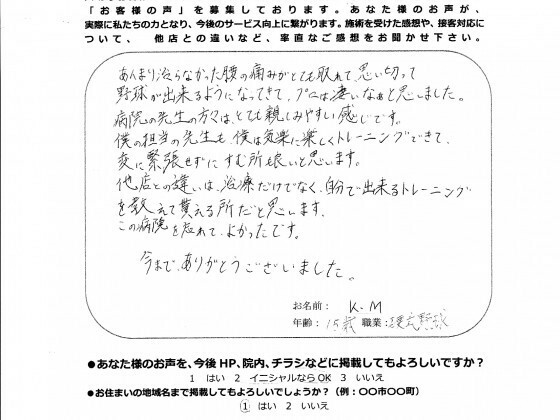 「お客様の声」を募集しております。あなた様のお声が、
実際に私たちの力となり、今後のサービス向上に繋がります。施術を受けた感想や、接客対応に
ついて、 他店との違いなど、率直なご感想をお聞かせ下さい。
あんまり治らなかった腰の痛みがとても取れて、思い切って
野球が出来るようになってきて、プロは凄いなぁと思しました。
病院の先生の方々は、とても親しみやすい感じです。
僕の担当の先生も、僕は気楽に楽しくトレーニングできて、
変に緊張せずにすむ所も良いと思います。
他店との違いは、治療だけでなく、自分で出来るトレーニング
を教えて貰える所だと思します。
この病院を
て、よかったです。
今まで、ありがとうございました。
お名前： K.M
年齢：15歳 職業：硬式野球
●あなた様のお声を、今後 HP、院内、チラシなどに掲載してもよろしいですか？
1 はい 2 イニシャルなら OK 3 いいえ
●お住まいの地域名まで掲載してもよろしいでしょうか？（例：〇〇市〇〇町）
① はい 2 いいえ